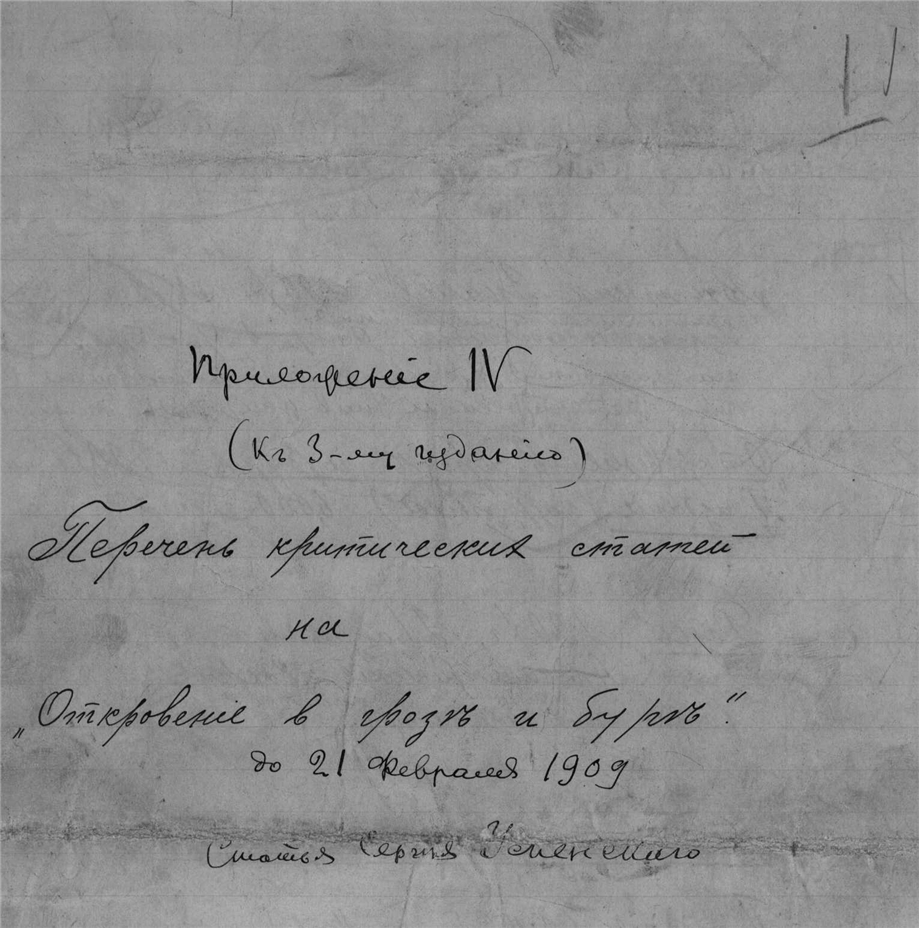 Приложеніе IV
(Къ 3-му изданію)
Перечень критических статей
на
„Откровеніе в грозѣ и бурѣ“.
до 21 Февраля 1909
Статья Сергея Успенского